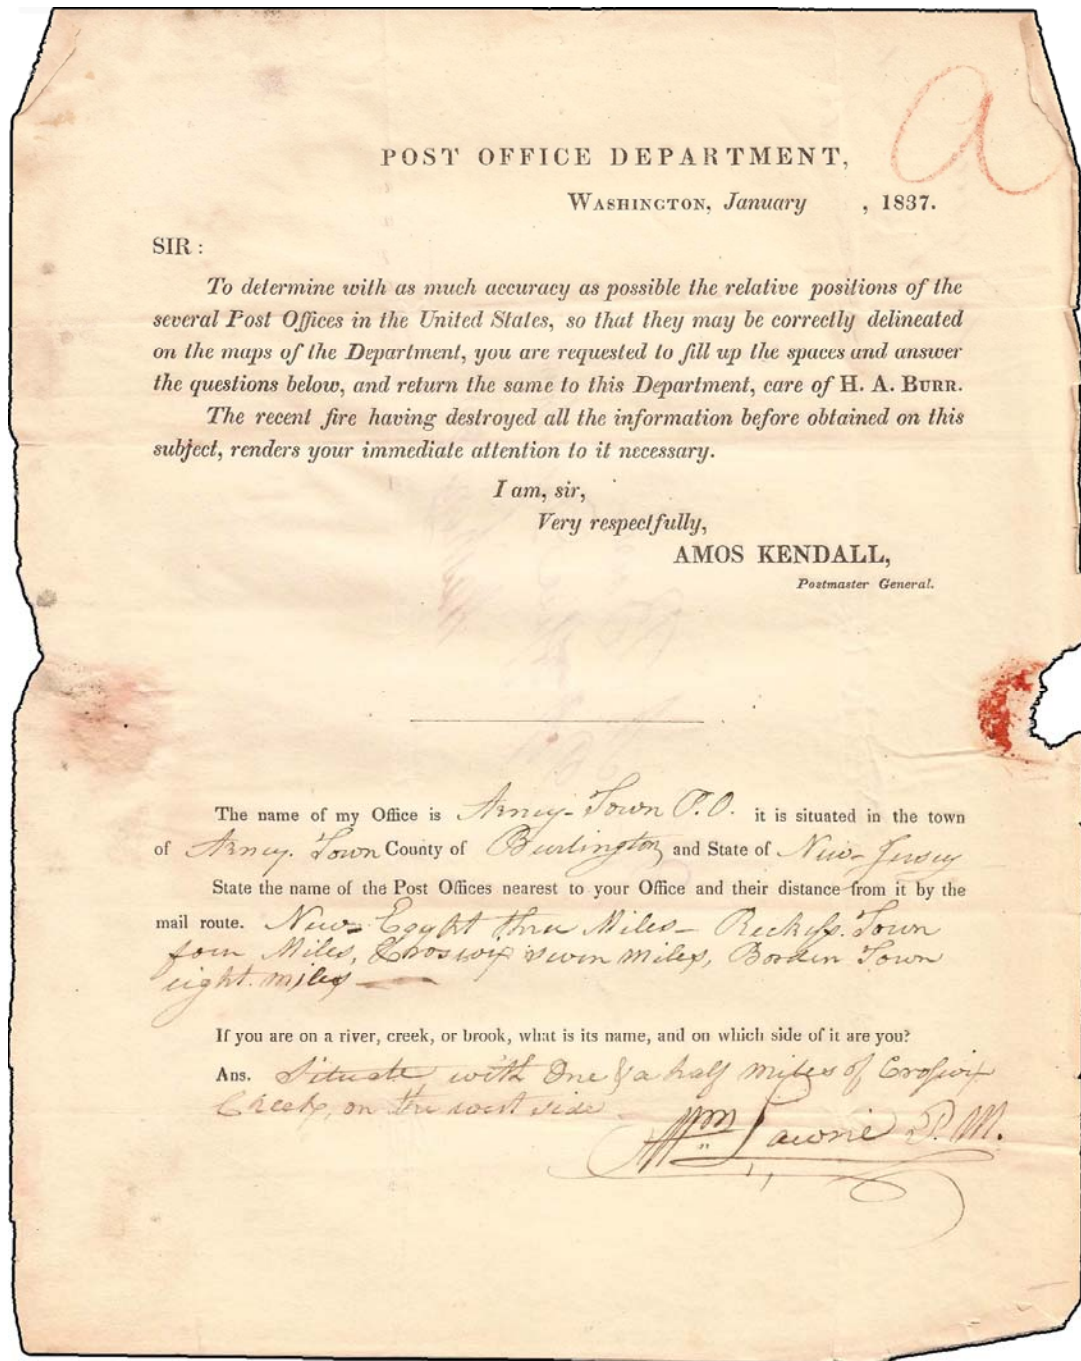 a
POST OFFICE DEPARTMENT,
WASHINGTON, January , 1837.
SIR :
To determine with as much accuracy as possible the relative positions of the
several Post Offices in the United States, so that they may be correctly delineated
on the maps of the Department, you are requested to fill up the spaces and answer
the questions below, and return the same to this Department, care of H. A. BURR.
The recent fire having destroyed all the information before obtained on this
subject, renders your immediate attention to it necessary.
I am, sir,
Very respectfully,
AMOS KENDALL,
Postmaster General.
The name of my Office is Arney-Town P.O. it is situated in the town
of Arney. Town County of Burlington and State of New-Jersey
State the name of the Post Offices nearest to your Office and their distance from it by the
mail route. New-Egypt three Miles - Reckless Town
four Miles, Croswix seven miles, Borden Town
eight miles —
If you are on a river, creek, or brook, what is its name, and on which side of it are you?
Ans. Situate with One & a half miles of Croswix
Creek, on the west side
Wm Lawrie P.M.